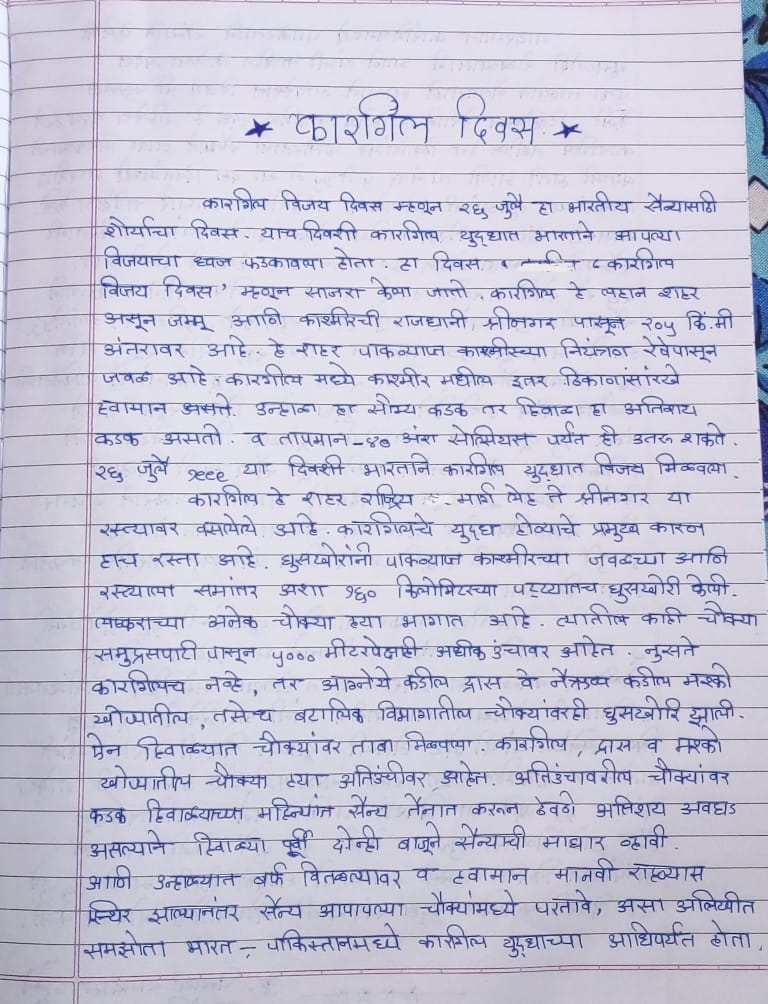 ★ कारगिल दिवस ★
कारगिल विजय दिवस म्हणून २६ जुलै हा भारतीय सैन्यासाठी
शौर्याचा दिवस. याच दिवशी कारगिल युद्धात भारताने आपल्या
विजयाचा ध्वज फडकावला होता. हा दिवस ' कारगिल
विजय दिवस' म्हणून साजरा केला जातो. कारगिल हे लहान शहर
असून जम्मू आणि काश्मिरची राजधानी श्रीनगर पासून २०५ कि.मी
अंतरावर आहे. हे शहर पाकव्याप्त काश्मीरच्या नियंत्रण रेषेपासून
जवळ आहे. कारगील मध्ये काश्मीर मधील इतर ठिकाणांसारखे
हवामान असते. उन्हाळा हा सौम्य कडक तर हिवाळा हा अतिशय
कडक असतो. व तापमान -४० अंश सेल्सियस पर्यंत ही उतरू शकते.
२६ जुलै १९९९ या दिवशी भारताने कारगिल युद्धात विजय मिळवला.
कारगिल हे शहर राष्ट्रिय मार्ग लेह ते श्रीनगर या
रस्त्यावर वसलेले आहे. कारगिलचे युद्ध होण्याचे प्रमुख कारण
हाच रस्ता आहे. घुसखोरांनी पाकव्याप्त काश्मीरच्या जवळच्या आणि
रस्त्याला समांतर अशा १६० किलोमिटरच्या पट्ट्यातच घुसखोरी केली.
लष्कराच्या अनेक चौक्या ह्या भागात आहे. त्यातील काही चौक्या
समुद्रसपाटी पासून ५००० मीटरपेक्षाही अधीक उंचावर आहेत. नुसते
कारगिलच नव्हे, तर आग्नेये कडील द्रास व नैऋत्य कडील मश्को
खोऱ्यातील, तसेच बटालिक विभागातील चौक्यांवरही घुसखोरि झाली.
ऐन हिवाळ्यात चौक्यांवर ताबा मिळवला. कारगिल, द्रास व मश्को
खोऱ्यातील चौक्या ह्या अतिउंचीवर आहेत. अतिउंचावरील चौक्यांवर
कडक हिवाळ्याच्या महिन्यांत सैन्य तैनात करून ठेवणे अतिशय अवघड
असल्याने हिवाळ्या पूर्वी दोन्ही बाजूने सैन्याची माघार व्हावी.
आणी उन्हाळ्यात बर्फ वितळल्यावर व हवामान मानवी राहण्यास
स्थिर झाल्यानंतर सैन्य आपापल्या चौक्यांमध्ये परतावे, असा अलिखीत
समझोता भारत - पाकिस्तानमध्ये कारगिल युद्धाच्या आधिपर्यंत होता.